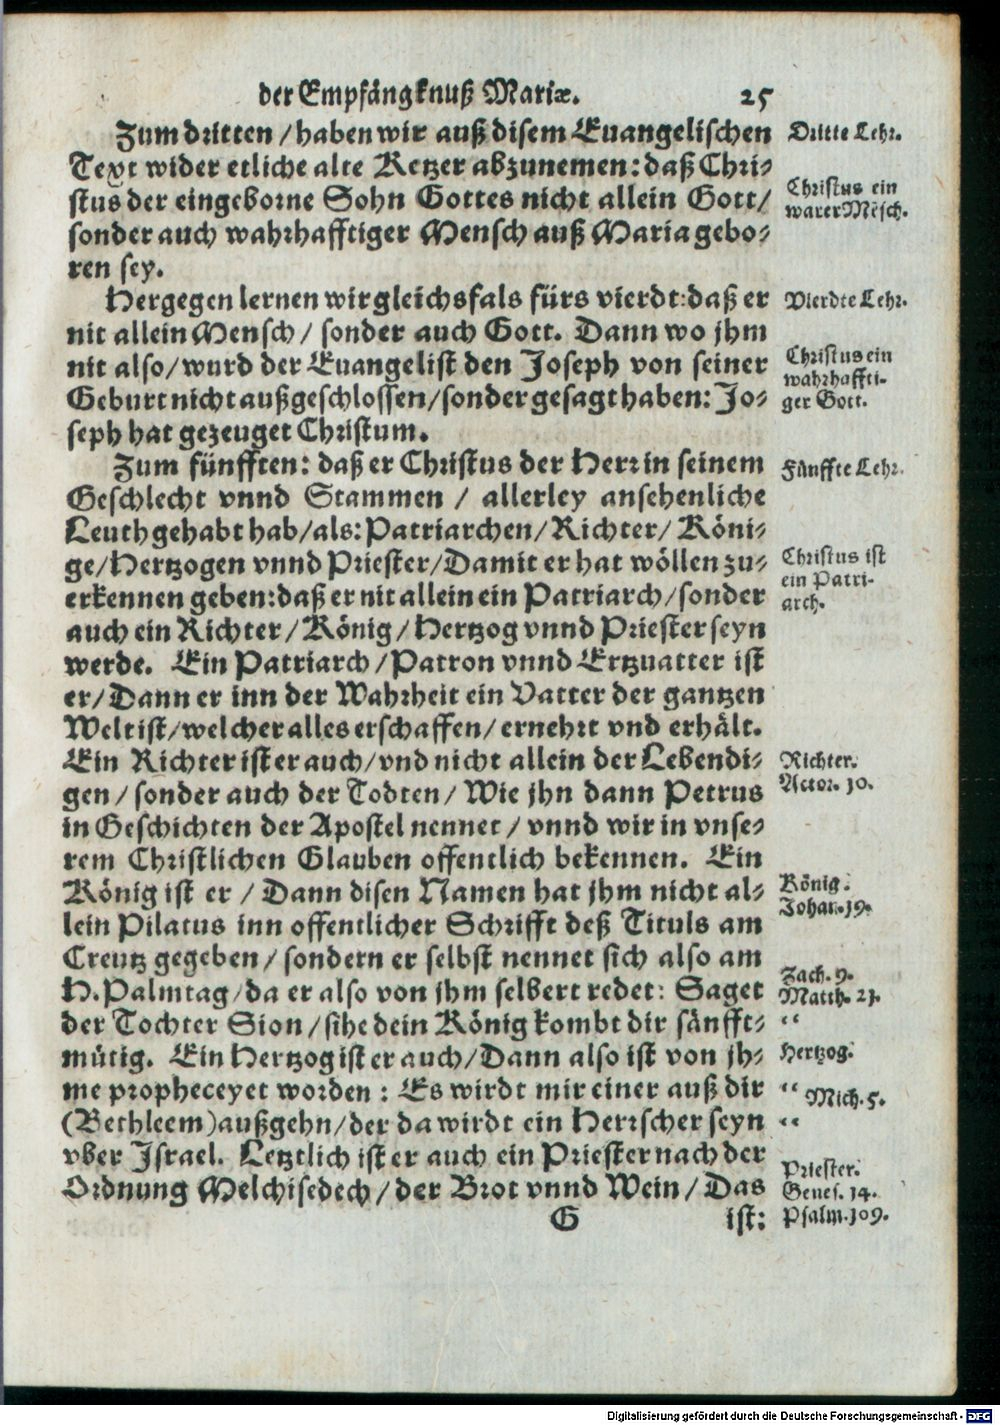 der Empfängknuß Mariæ. 25
Zum dritten / haben wir auß disem Euangelischen
Text wider etliche alte Ketzer abzunemen: daß Chri-
stus der eingeborne Sohn Gottes nicht allein Gott /
sonder auch wahrhafftiger Mensch auß Maria gebo-
ren sey.
Hergegen lernen wir gleichsfals fürs vierdt: daß er
nit allein Mensch / sonder auch Gott. Dann wo jhm
nit also / wurd der Euangelist den Joseph von seiner
Geburt nicht außgeschlossen / sonder gesagt haben: Jo-
seph hat gezeuget Christum.
Zum fünfften: daß er Christus der Herr in seinem
Geschlecht vnnd Stammen / allerley ansehenliche
Leuth gehabt hab / als: Patriarchen / Richter / Köni-
ge / Hertzogen vnnd Priester / Damit er hat wöllen zu-
erkennen geben: daß er nit allein ein Patriarch / sonder
auch ein Richter / König / Hertzog vnnd Priester seyn
werde. Ein Patriarch / Patron vnnd Ertzuatter ist
er / Dann er inn der Wahrheit ein Vatter der gantzen
Welt ist / welcher alles erschaffen / ernehrt vnd erhält.
Ein Richter ist er auch / vnd nicht allein der Lebendi-
gen / sonder auch der Todten / Wie jhn dann Petrus
in Geschichten der Apostel nennet / vnnd wir in vnse-
rem Christlichen Glauben offentlich bekennen. Ein
König ist er / Dann disen Namen hat jhm nicht al-
lein Pilatus inn offentlicher Schrifft deß Tituls am
Creutz gegeben / sondern er selbst nennet sich also am
H. Palmtag / da er also von jhm selbert redet: Saget
der Tochter Sion / sihe dein König kombt dir sänfft-
mütig. Ein Hertzog ist er auch / Dann also ist von jh-
me propheceyet worden: Es wirdt mir einer auß dir
(Bethleem) außgehn / der da wirdt ein Herrscher seyn
vber Israel. Letztlich ist er auch ein Priester nach der
Ordnung Melchisedech / der Brot vnnd Wein / Das
G ist:
Dritte Lehr.
Christus ein
warer Mẽsch.
Vierdte Lehr.
Christus ein
wahrhaffti-
ger Gott.
Fünffte Lehr.
Christus ist
ein Patri-
arch.
Richter.
Actor. 10.
König.
Johan. 19.
Zach. 9.
Matth. 21.
“
Hertzog.
“ Mich. 5.
“
Priester.
Genes. 14.
Psalm. 109.
Digitalisierung gefördert durch die Deutsche Forschungsgemeinschaft - DFG